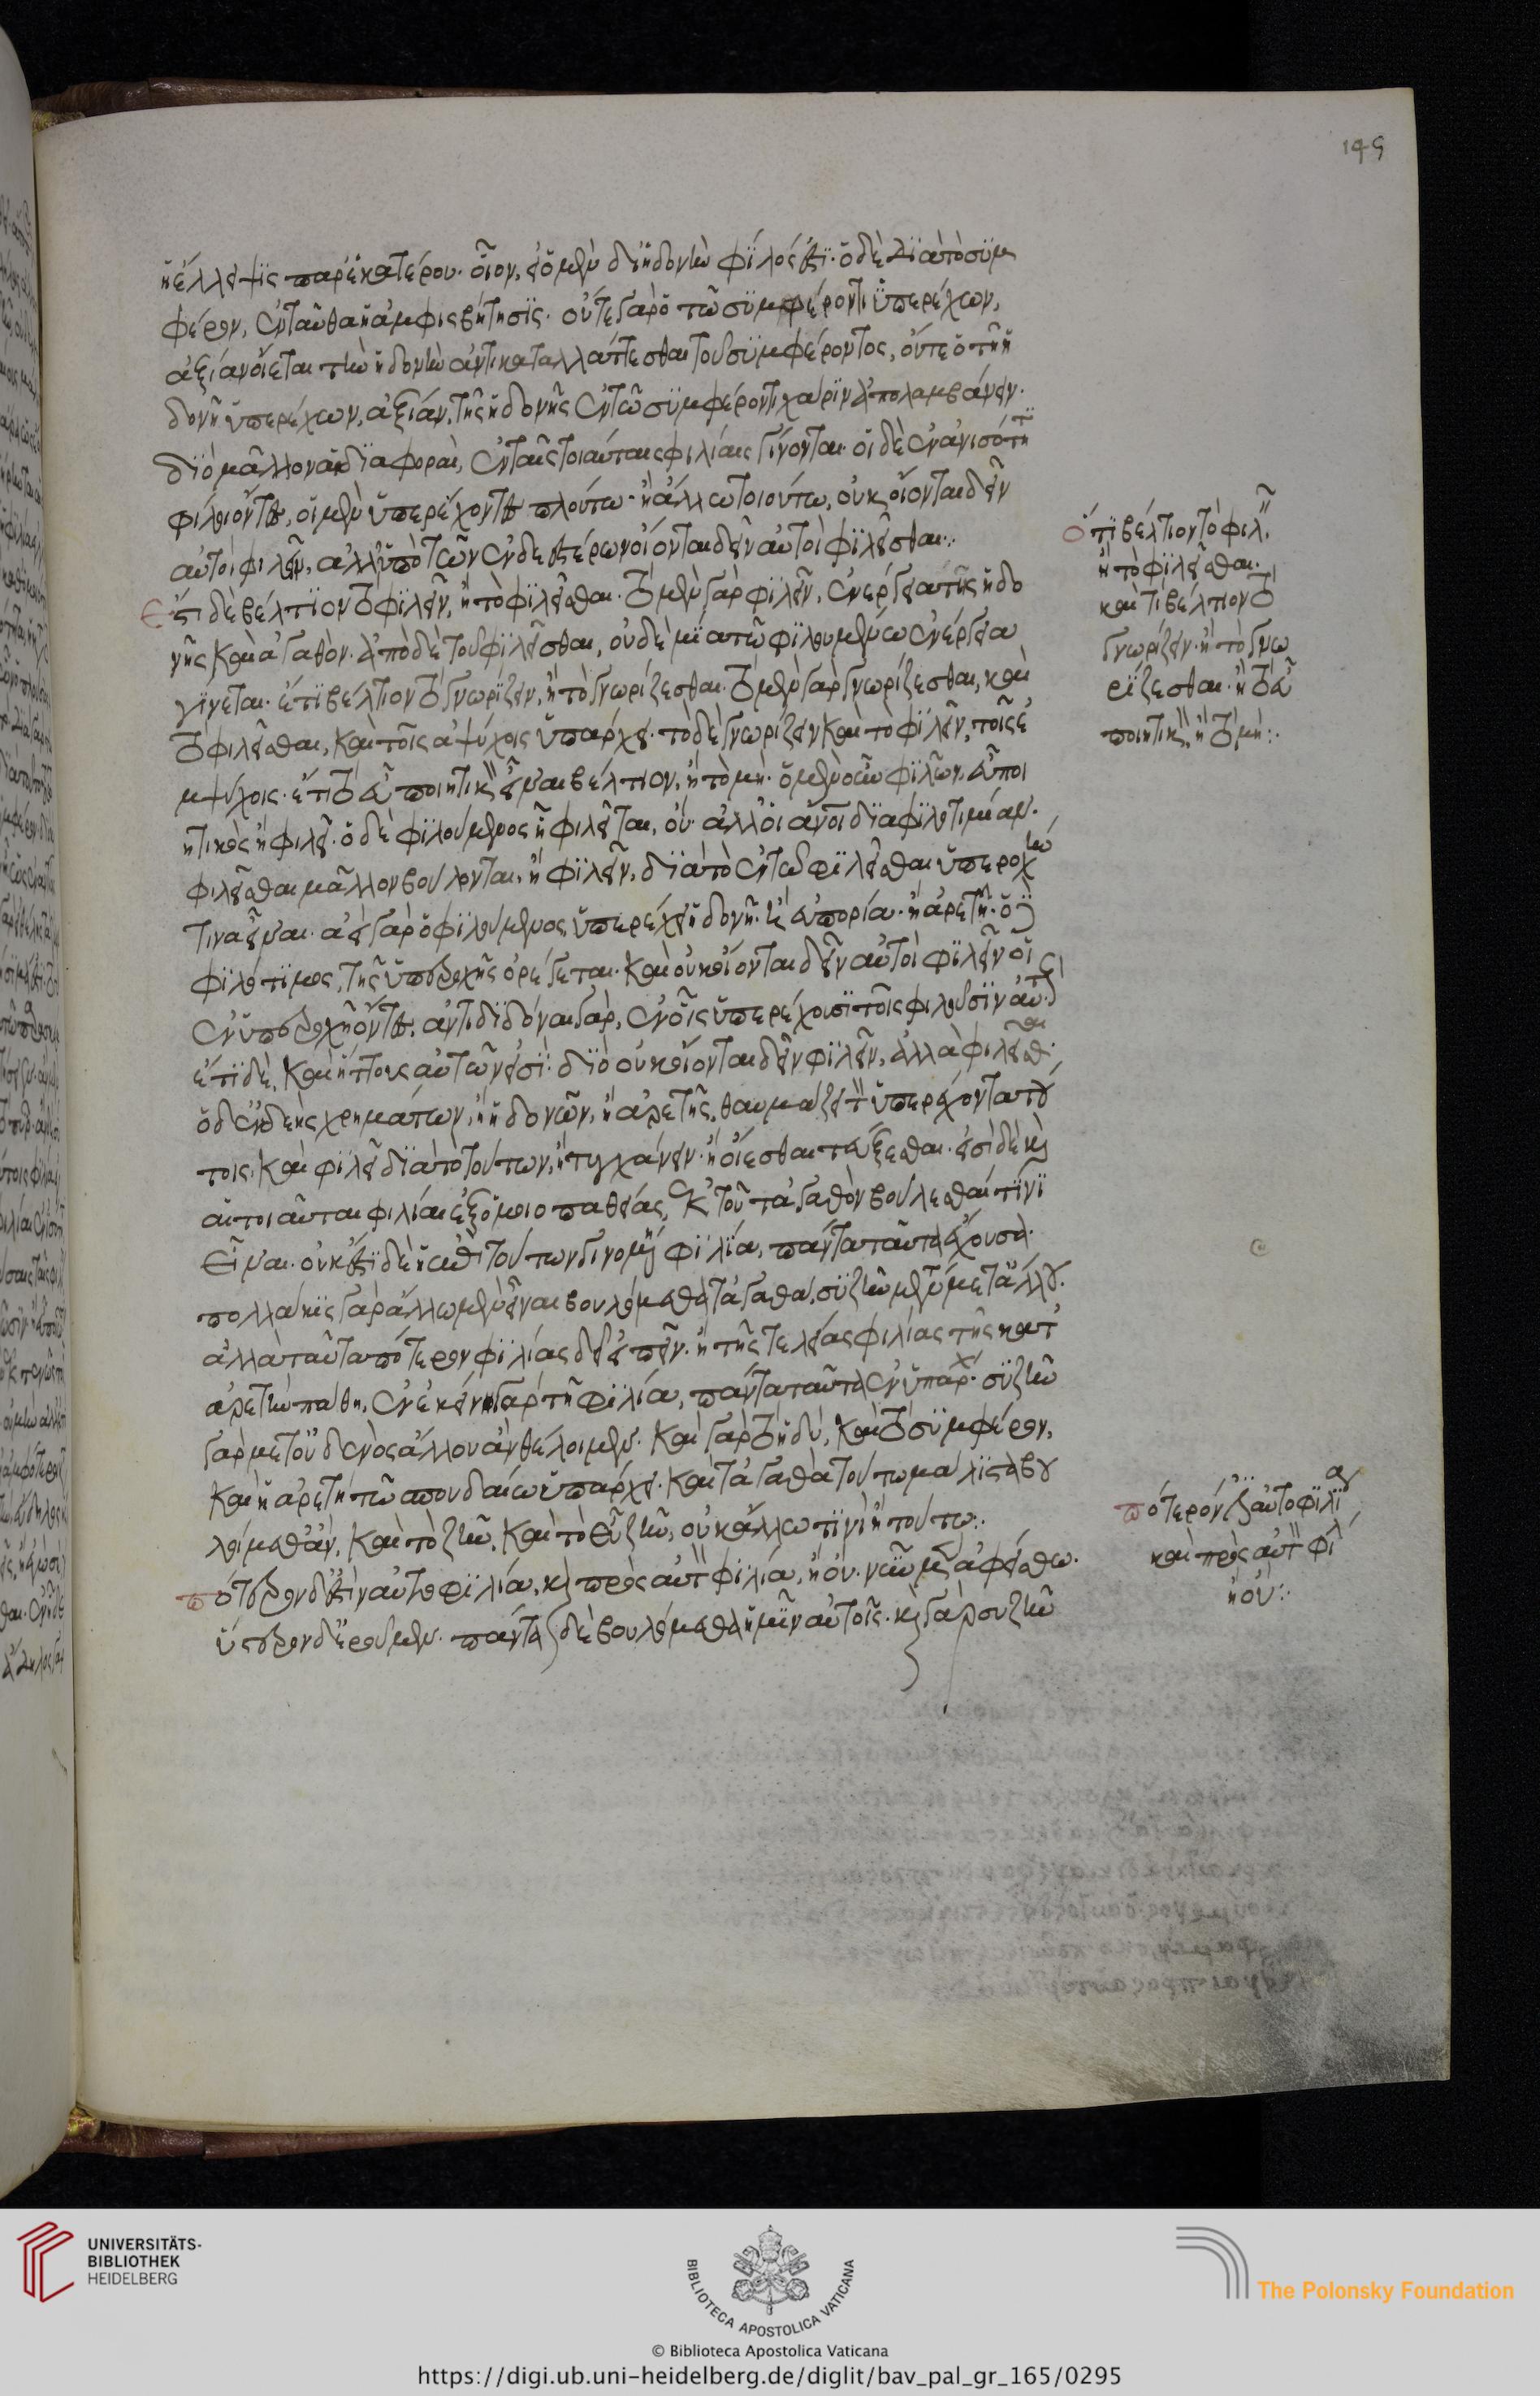 149
ἡ ἔλλειψις παρ' ἑκατέρου. οἷον, εἰ ὁ μὲν δι' ἡδονὴν φίλος ἐστὶ. ὁ δὲ διὰ τὸ συμ
φέρον, ἐνταῦθα ἡ ἀμφισβήτησις. οὔτε γὰρ ὁ τῷ συμφέροντι ὑπερέχων,
ἀξίαν οἴεται τὴν ἡδονὴν ἀντικαταλλάττεσθαι τοῦ συμφέροντος, οὔτε ὁ τῇ ἡ
δονῇ ὑπερέχων, ἀξίαν, τῆς ἡδονῆς ἐν τῷ συμφέροντι χάριν ἀπολαμβάνειν.
διὸ μᾶλλον αἱ διαφοραὶ, ἐν ταῖς τοιαύταις φιλίαις γίνονται. οἱ δὲ ἐν ἀνισότητι
φίλοι ὄντες, οἱ μὲν ὑπερέχοντες πλούτῳ. ἢ ἄλλῳ τοιούτῳ, οὐκ οἴονται δεῖν
αὐτοὶ φιλεῖν, ἀλλ' ὑπὸ τῶν ἐνδεεστέρων οἴονται δεῖν αὐτοὶ φιλεῖσθαι:
Ἔτι δὲ βέλτιον τὸ φιλεῖν, ἢ τὸ φιλεῖσθαι. τὸ μὲν γὰρ φιλεῖν, ἐνέργειά τις ἡδο
νῆς καὶ ἀγαθὸν. ἀπὸ δὲ τοῦ φιλεῖσθαι, οὐδὲ μία τῷ φιλουμένῳ ἐνέργεια
γίνεται. ἔτι βέλτιον τὸ γνωρίζειν, ἢ τὸ γνωρίζεσθαι. τὸ μὲν γὰρ γνωρίζεσθαι, καὶ
τὸ φιλεῖσθαι, καὶ τοῖς ἀψύχοις ὑπάρχει. τὸ δὲ γνωρίζειν καὶ τὸ φιλεῖν, τοῖς ἐ
μψύχοις. ἔτι τὸ εὖ ποιητικὸν εἶναι βέλτιον, ἢ τὸ μή. ὁ μὲν οὖν φιλῶν, εὖ ποι
ητικὸς ᾗ φιλεῖ. ὁ δὲ φιλούμενος ᾗ φιλεῖται, οὔ. ἀλλ' οἱ ἄνθρωποι διὰ φιλοτιμίαν.
φιλεῖσθαι μᾶλλον βούλονται, ἢ φιλεῖν, διὰ τὸ ἐν τῷ φιλεῖσθαι ὑπεροχὴν
τινὰ εἶναι. ἀεὶ γὰρ ὁ φιλούμενος ὑπερέχει ἡδονῇ. ἢ εὐπορίᾳ. ἢ ἀρετῇ. ὁ δὲ
φιλότιμος, τῆς ὑπεροχῆς ὀρέγεται. καὶ οὐκ οἴονται δεῖν αὐτοὶ φιλεῖν οἱ
ἐν ὑπεροχῇ ὄντες. ἀντιδιδόναι γὰρ, ἐν οἷς ὑπερέχουσι τοῖς φιλοῦσιν αὐτούς.
ἔτι δὲ, καὶ ἥττους αὐτῶν εἰσί. διὸ οὐκ οἴονται δεῖν φιλεῖν, ἀλλὰ φιλεῖσθαι.
ὁ δ' ἐνδεὴς χρημάτων, ἢ ἡδονῶν, ἢ ἀρετῆς, θαυμάζει τὸν ὑπερέχοντα τού
τοις. καὶ φιλεῖ διὰ τὸ τούτων, ἢ τυγχάνειν. ἢ οἴεσθαι τεύξεσθαι. εἰσὶ δὲ καὶ
αἱ τοιαῦται φιλίαι ἐξ ὁμοιοπαθείας, ἐκ τοῦ τἀγαθὸν βούλεσθαί τινι
εἶναι. οὐκ ἔστι δὲ ἡ ἐπὶ τούτων γινομένη φιλία, πάντα ταῦτα ἔχουσα.
πολλάκις γὰρ ἄλλῳ μὲν εἶναι βουλόμεθα τἀγαθὰ, συζῆν μέντοι μετ' ἄλλου.
ἀλλὰ ταῦτα πότερον φιλίας δεῖ εἰπεῖν. ἢ τῆς τελείας φιλίας τῆς κατ'
ἀρετὴν πάθη, ἐν ἐκείνῃ γὰρ τῇ φιλίᾳ, πάντα ταῦτα ἐνυπάρχει. συζῆν
γὰρ μετ' οὐδενὸς ἄλλου ἂν θέλοιμεν. καὶ γὰρ τὸ ἡδύ, καὶ τὸ συμφέρον,
καὶ ἡ ἀρετὴ τῷ σπουδαίῳ ὑπάρχει. καὶ τἀγαθὰ τούτῳ μάλιστα βου
λοίμεθ' ἄν, καὶ τὸ ζῆν, καὶ τὸ εὖ ζῆν, οὐκ ἄλλῳ τινὶ ἢ τούτῳ:
πότερον δ' ἔστιν αὐτοφιλία, καὶ πρὸς αὑτὸν φιλία, ἢ οὔ. νῦν μὲν ἀφείσθω.
ὕστερον δ' ἐροῦμεν. πάντα δὲ βουλόμεθα ἡμῖν αὐτοῖς. καὶ γὰρ συζῆν
Ὅτι βέλτιον τὸ φιλεῖν,
ἢ τὸ φιλεῖσθαι.
καὶ τί βέλτιον τὸ
γνωρίζειν. ἢ τὸ γνω
ρίζεσθαι. ἢ τὸ εὖ
ποιητικὸν, ἢ τὸ μή:
πότερόν ἐστιν αὐτοφιλία,
καὶ πρὸς αὑτὸν φιλία
ἢ οὔ:
UNIVERSITÄTS-
BIBLIOTHEK
HEIDELBERG
BIBLIOTECA APOSTOLICA VATICANA
The Polonsky Foundation
© Biblioteca Apostolica Vaticana
https://digi.ub.uni-heidelberg.de/diglit/bav_pal_gr_165/0295